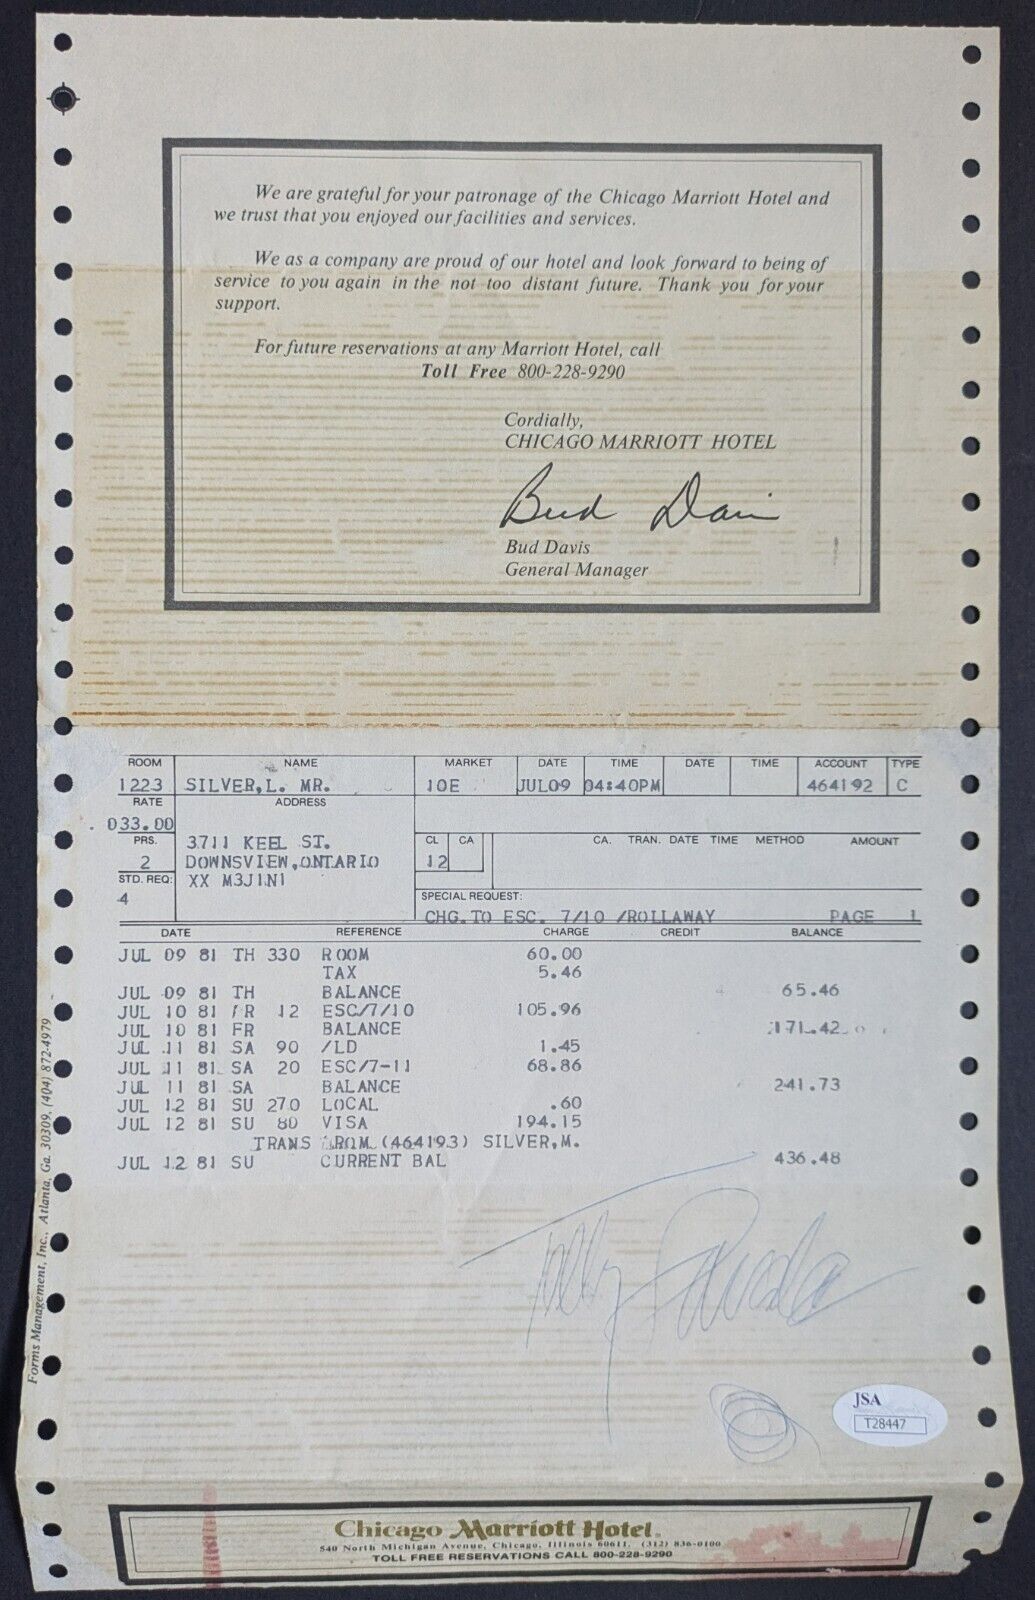 We are grateful for your patronage of the Chicago Marriott Hotel and
we trust that you enjoyed our facilities and services.
We as a company are proud of our hotel and look forward to being of
service to you again in the not too distant future. Thank you for your
support.
For future reservations at any Marriott Hotel, call
Toll Free 800-228-9290
Cordially,
CHICAGO MARRIOTT HOTEL
Bud Davis
Bud Davis
General Manager
ROOM NAME MARKET DATE TIME DATE TIME ACCOUNT TYPE
1223 SILVER,L. MR. 10E JUL09 04:40PM 464192 C
RATE ADDRESS
033.00
PRS. 3711 KEEL ST. CL CA CA. TRAN. DATE TIME METHOD AMOUNT
2 DOWNSVIEW,ONTARIO 12
STD. REQ: XX M3J1N1
4 SPECIAL REQUEST:
CHG.TO ESC. 7/10 /ROLLAWAY PAGE 1
DATE REFERENCE CHARGE CREDIT BALANCE
JUL 09 81 TH 330 ROOM 60.00
TAX 5.46
JUL 09 81 TH BALANCE 65.46
JUL 10 81 FR 12 ESC/7/10 105.96
JUL 10 81 FR BALANCE 171.42
JUL 11 81 SA 90 /LD 1.45
JUL 11 81 SA 20 ESC/7-11 68.86
JUL 11 81 SA BALANCE 241.73
JUL 12 81 SU 270 LOCAL .60
JUL 12 81 SU 80 VISA 194.15
TRANS FROM (464193) SILVER,M.
JUL 12 81 SU CURRENT BAL 436.48
Forms Management, Inc., Atlanta, Ga. 30309, (404) 872-4979
Telly Savalas
JSA
T28447
Chicago Marriott Hotel.
540 North Michigan Avenue, Chicago, Illinois 60611, (312) 836-0100
TOLL FREE RESERVATIONS CALL 800-228-9290